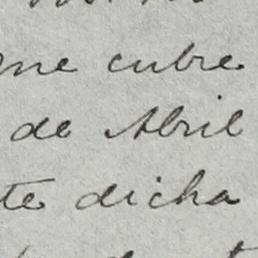 me cubre
de Abril
te dicha